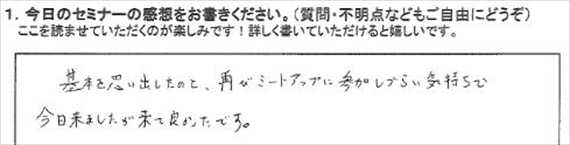 1. 今日のセミナーの感想をお書きください。（質問・不明点などもご自由にどうぞ）
ここを読ませていただくのが楽しみです！詳しく書いていただけると嬉しいです。
基本を思い出したのと、再びミートアップに参加しづらい気持ちで
今日来ましたが来て良かったです。